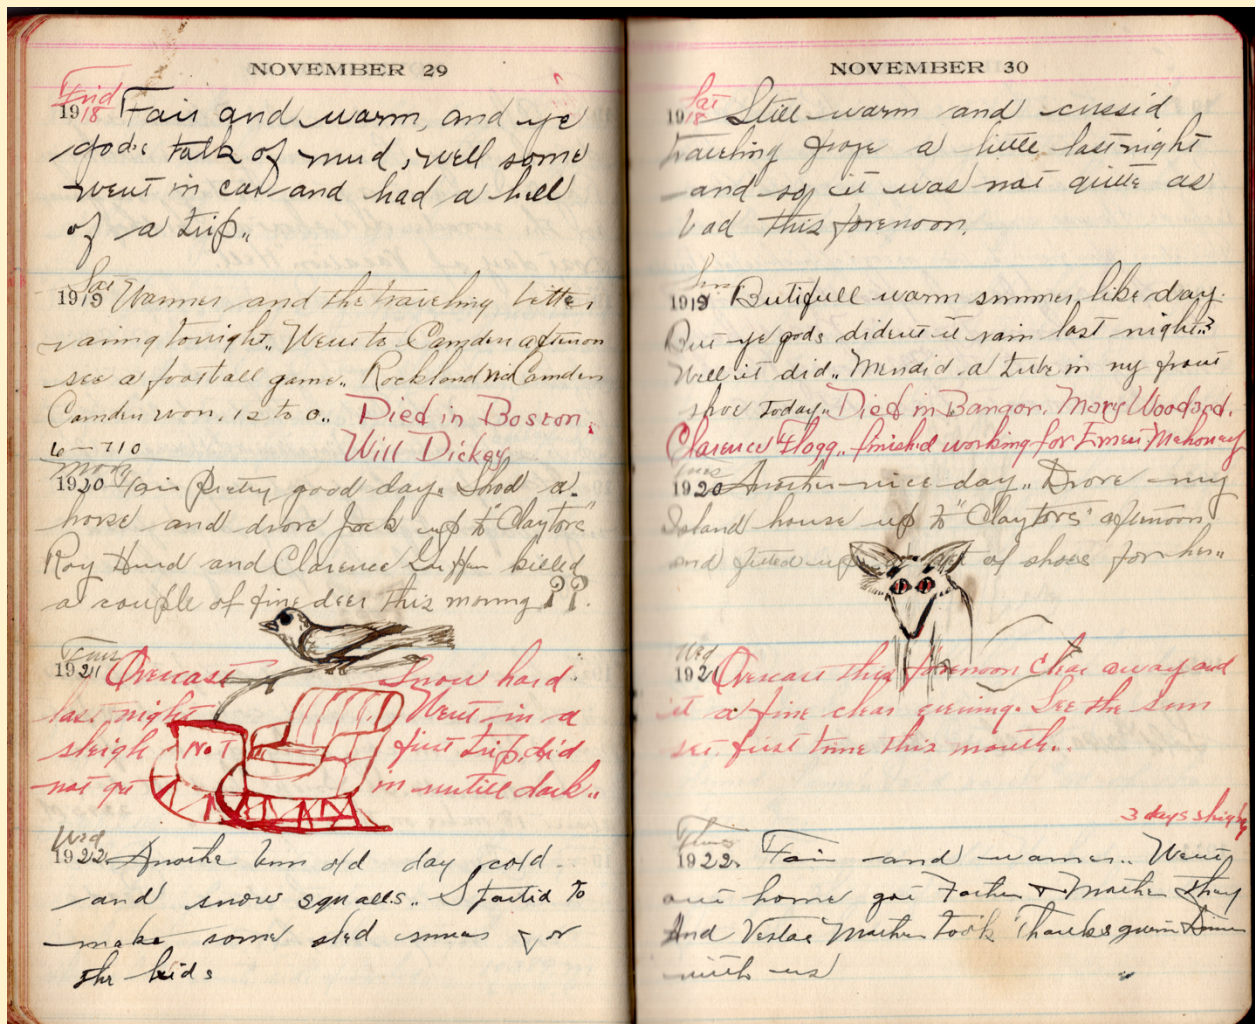 NOVEMBER 29
Frid
1918 Fair and warm, and ye
gods talk of mud, well some
went in car and had a hell
of a trip..
Sat
1919 Warmer and the traveling better
raring tonight.. Went to Camden afternoon
see a football game.. Rockland nd Camden
Camden won. 12 to 0.. Died in Boston.
6-710 Will Dickey
Mon
1920 Fair Pretty good day. Shod a
horse and drove Jack up to "Claytors"
Roy Hurd and Clarence killed
a couple of fine deer this morning ??.
Tues
1921 Overcast Snow hard
last night Went in a
sleigh No 1 first trip, did
not get in untill dark..
Wed
1922 Anothe bum old day cold
and snow squalls.. Started to
make some sled for
the kids
NOVEMBER 30
Sat
1918 Still warm and cussid
traveling froze a little last night
and so it was not quite as
bad this forenoon.
Sun
1919 Butifull warm summer, like day.
But ye gods dident it rain last night..?
Well it did.. Mendid a tube in my front
shoe today.. Died in Bangor. Mary Woodard.
Clarence Flagg.. finishd working for Emery Mahoney
Tues
1920 Another nice day.. Drove my
Island house up to "Claytors" afternoon
and fitted up a of shoes for her..
Wed
1921 Overcast this forenoon Clear away and
it a fine clear evening. See the sun
set first time this month..
3 days sleighg
Thurs
1922 Fair and warmer.. Went
out home got Father & Mother They
And Vestas Mother took Thanksgivin Dinner
with us